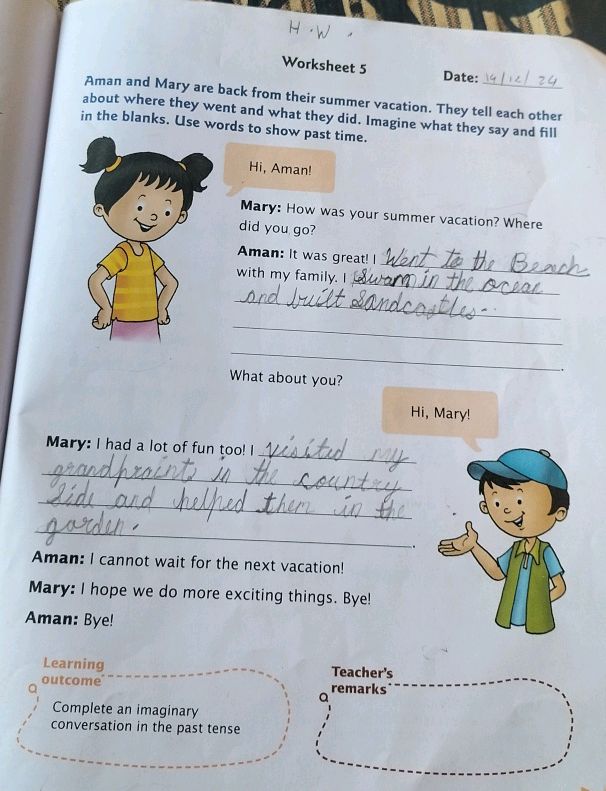 H.W.
Worksheet 5
Date: 19/12/24
Aman and Mary are back from their summer vacation. They tell each other
about where they went and what they did. Imagine what they say and fill
in the blanks. Use words to show past time.
Hi, Aman!
Mary: How was your summer vacation? Where
did you go?
Aman: It was great! I Went to the Beach
with my family. I Swam in the ocean
and built Sandcastles.
What about you?
Hi, Mary!
Mary: I had a lot of fun too! I visited my
grandpraints in the country
Side and helped them in the
garden.
Aman: I cannot wait for the next vacation!
Mary: I hope we do more exciting things. Bye!
Aman: Bye!
Learning
outcome
Complete an imaginary
conversation in the past tense
Teacher's
remarks